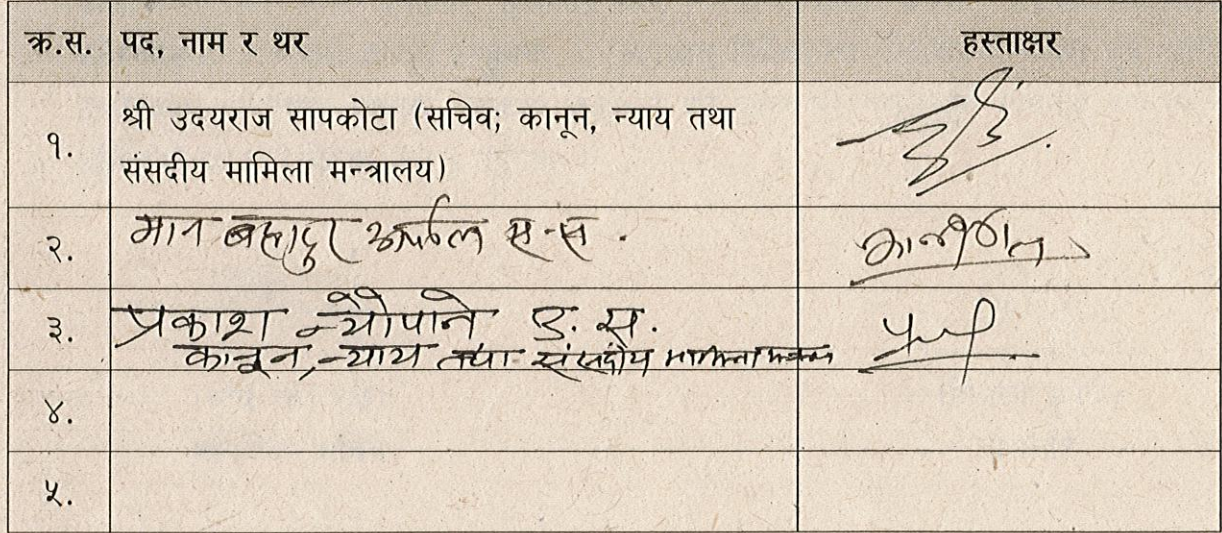 क्र.स. पद, नाम र थर हस्ताक्षर
१. श्री उदयराज सापकोटा (सचिव; कानून, न्याय तथा
संसदीय मामिला मन्त्रालय)
२. मान बहादुर अर्याल स-स.
३. प्रकाश न्यौपाने उ. स.
कानून, न्याय तथा संसदीय मामिला
४.
५.